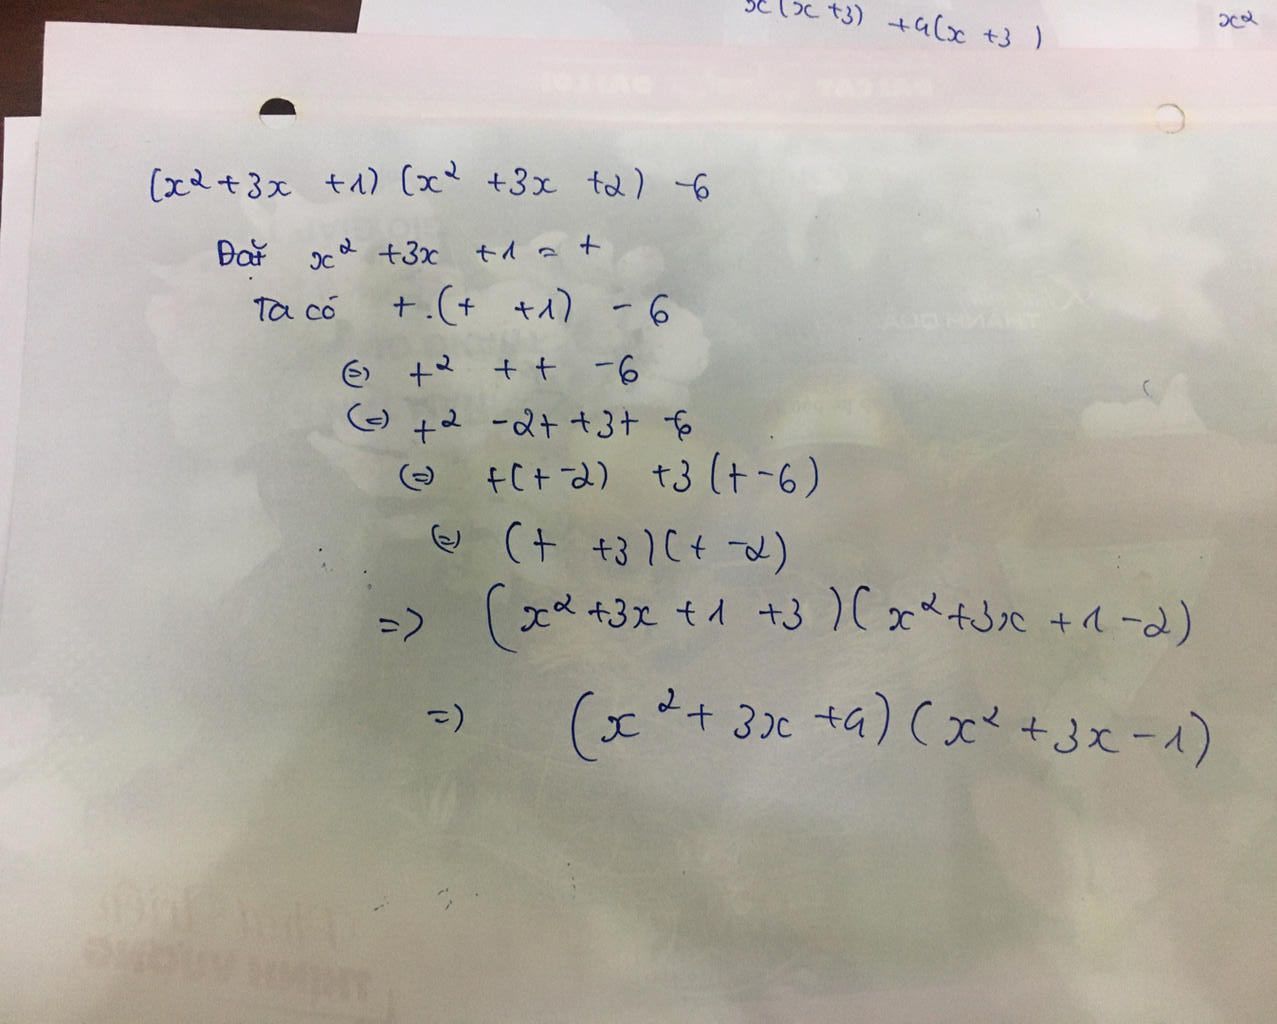 x(x+3) +4(x+3)
x²
(x²+3x+1)(x²+3x+2)-6
Đặt x²+3x+1=t
Ta có t.(t+1)-6
(=) t²+t-6
(=) t²-2t+3t-6
(=) t(t-2)+3(t-6)
(=) (t+3)(t-2)
=> (x²+3x+1+3)(x²+3x+1-2)
=) (x²+3x+4)(x²+3x-1)